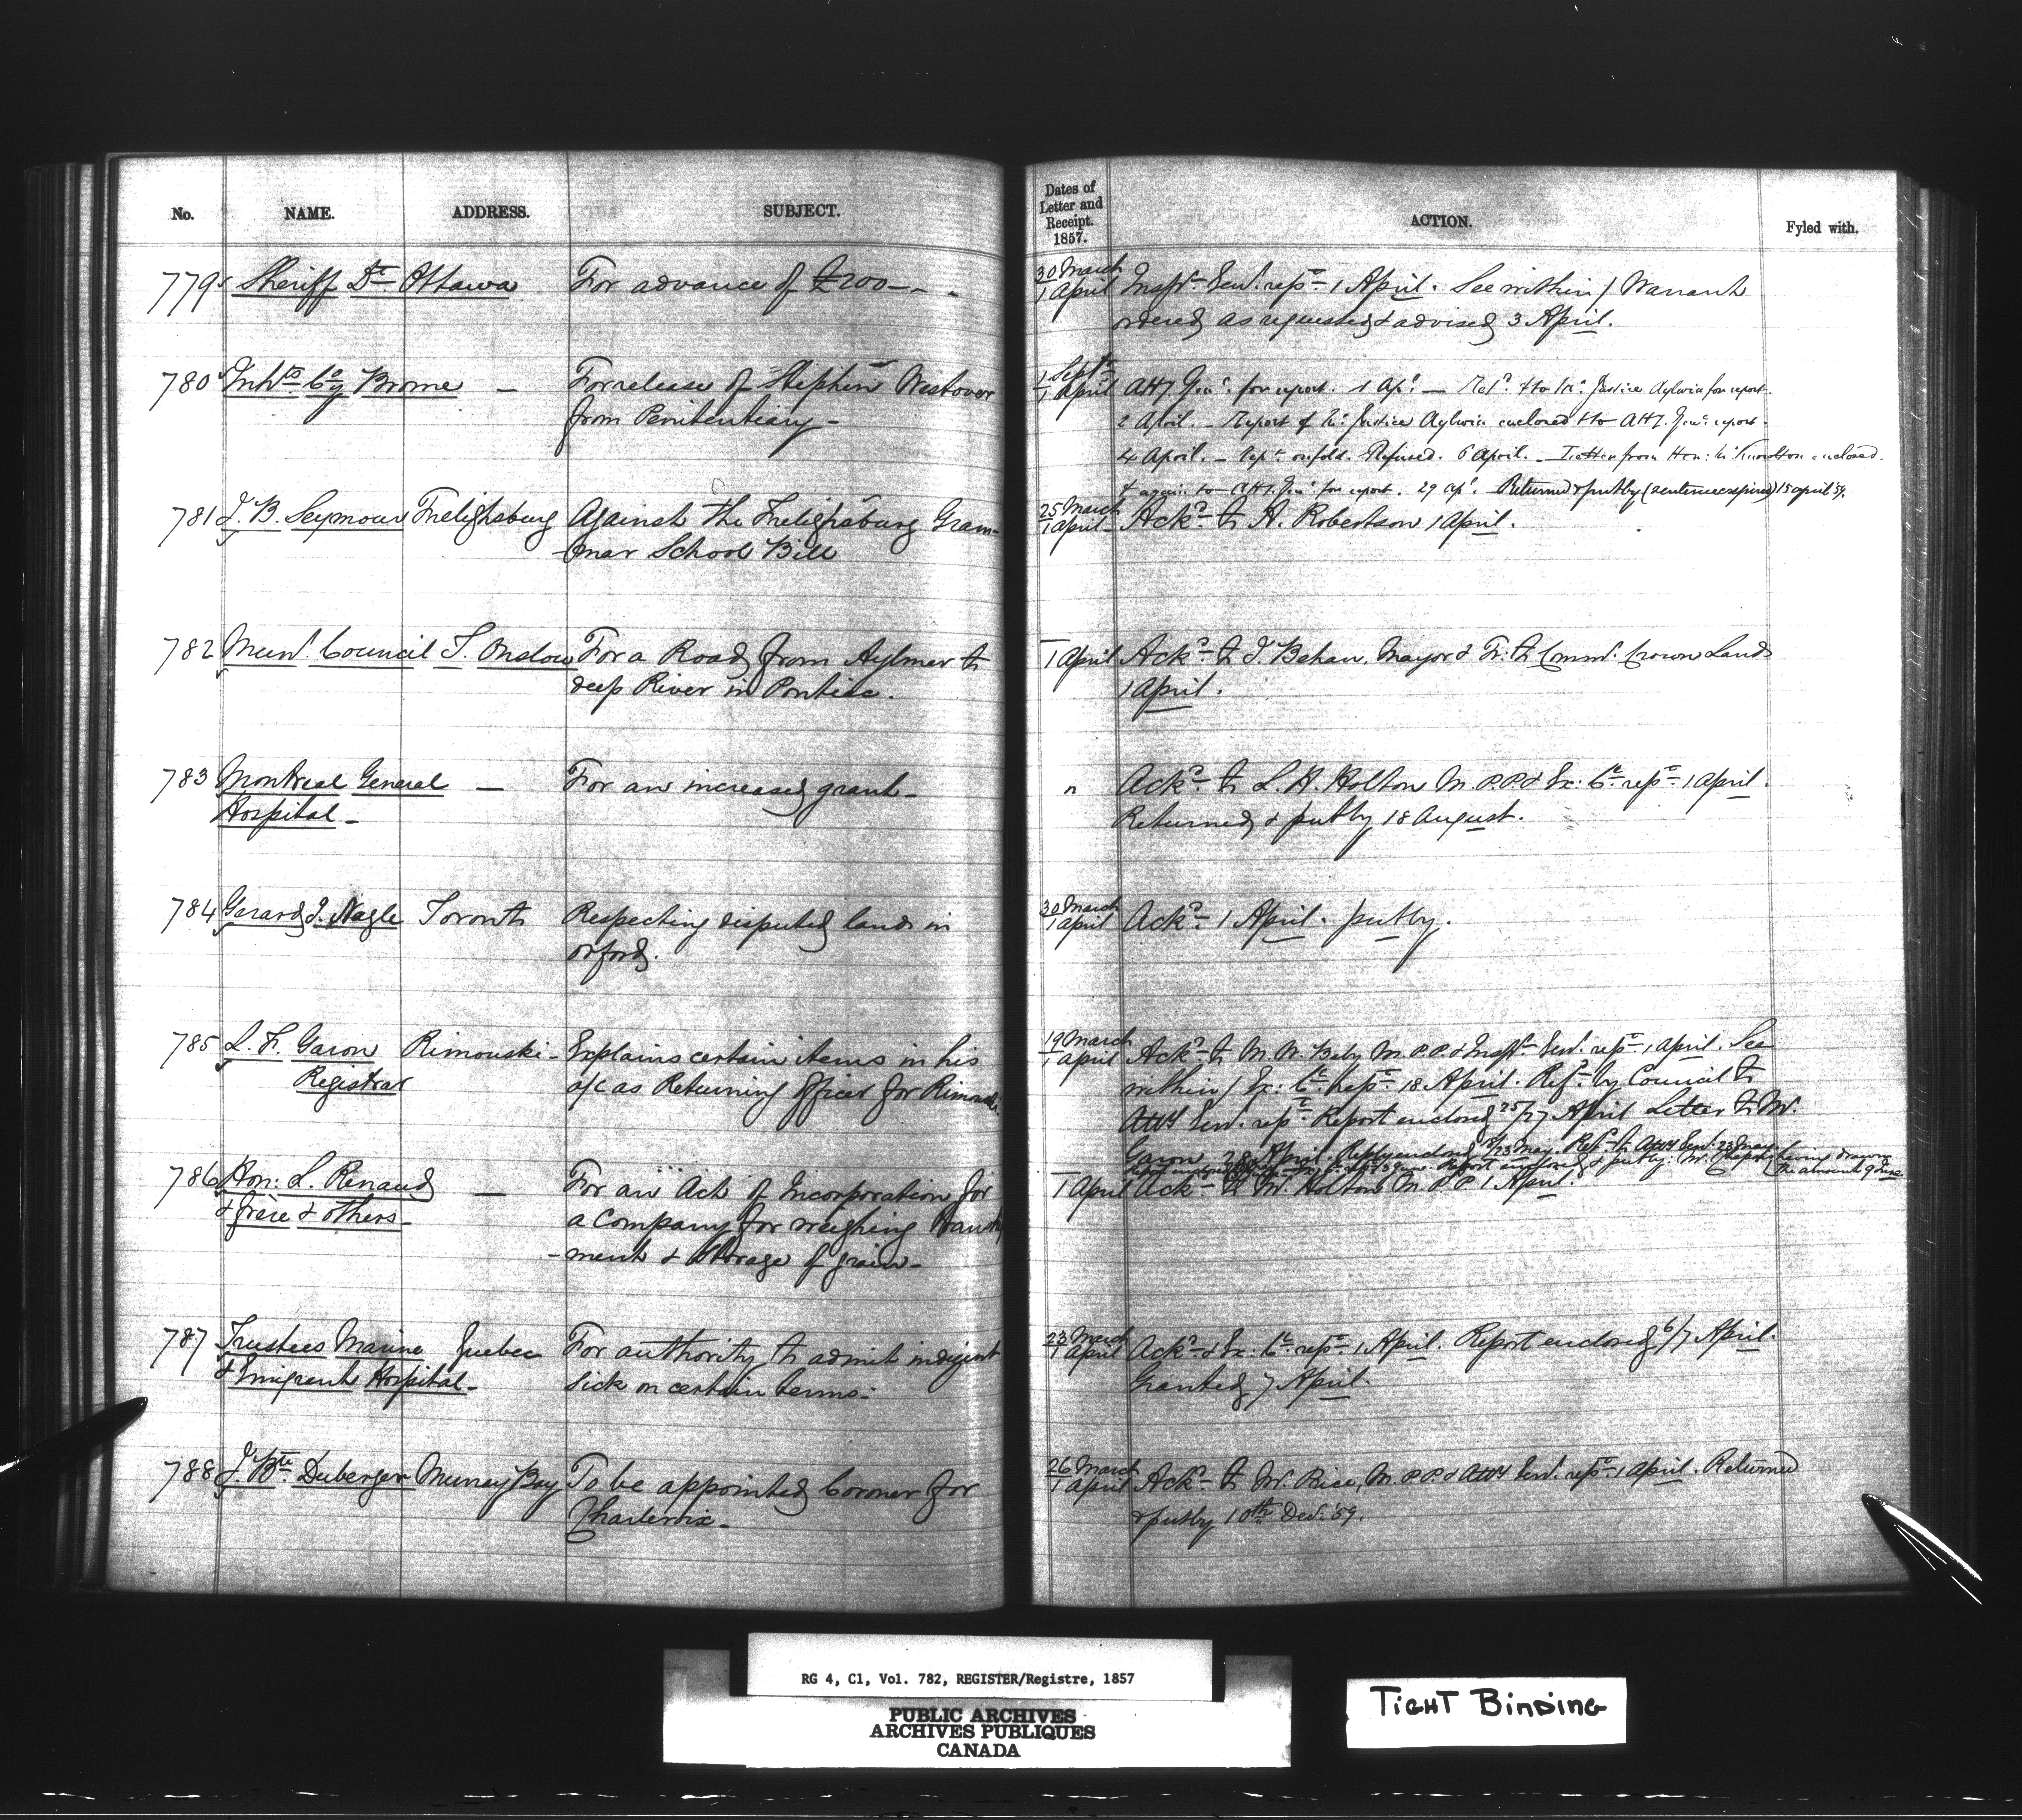 No. NAME. ADDRESS. SUBJECT. Dates of Letter and Receipt. 1857. ACTION. Fyled with.
779 Sheriff Dt Ottawa For advance of £200 — 30 March / 1 April Inspr Genl repe 1 April. See within / Warrant
ordered as requested & advised 3 April.
780 Inhts Co Brome — For release of Stephen Westover 1 Septr / 1 April Atty Genl for report. 1 Apl — Retd & to Mr Justice Aylwin for report.
from Penitentiary — 2 April. — Report of Mr Justice Aylwin enclosed & to Atty. Genl report.
4 April. — Refused. 6 April. — Letter from Hon: Mr Knowlton enclosed.
& again to Atty. Genl for report. 29 Apl. Returned & put by (sentence expired) 15 April 59.
781 J. B. Seymour Frelighsburg Against the Frelighsburg Gram- 25 March / 1 April Ackd to A. Robertson 1 April.
-mar School Bill
782 Munl Council T. Onslow For a Road from Aylmer to 1 April Ackd to J. Behan, Mayor & Tr: to Commr Crown Lands
deep River in Pontiac. 1 April.
783 Montreal General — For an increased grant — " Ackd to L. H. Holton M. P. P. & Ex: Ce repe 1 April.
Hospital — Returned & put by 18 August.
784 Gerard J. Nagle Toronto Respecting disputed lands in 30 March / 1 April Ackd 1 April. put by.
Orford.
785 L. F. Garon Rimouski — Explains certain items in his 19 March / 1 April Ackd to M. W. Baby M. P. P. & Inspr Genl repe 1 April. See
Registrar a/c as Returning Officer for Rimouski within / Ex: Ce repe 18 April. Refd by Council to
Atty Genl repe Report enclosed 25/27 April Letter to Mr.
Garon 28 April. Reply enclosed 18/23 May. Refd to Atty Genl 23 May
Report enclosed & put by: Mr. having drawn the amount
786 Hon: L. Renaud — For an Act of Incorporation for 1 April Ackd to Mr. Holton M. P. P. 1 April.
& frère & others — a Company for weighing
-ment & Storage of grain —
787 Trustees Marine Quebec For authority to admit indigent 23 March / 1 April Ackd & Ex: Ce repe 1 April. Report enclosed 6/7 April.
& Emigrant Hospital — sick on certain terms — Granted 7 April.
788 J. Bte Duberger Murray Bay To be appointed Coroner for 26 March / 1 April Ackd to Mr. Price, M. P. P. & Atty Genl repe 1 April. Returned
Charlevoix — & put by 10th Decr 59.
RG 4, C1, Vol. 782, REGISTER/Registre, 1857
PUBLIC ARCHIVES
ARCHIVES PUBLIQUES
CANADA
TIGHT BINDING